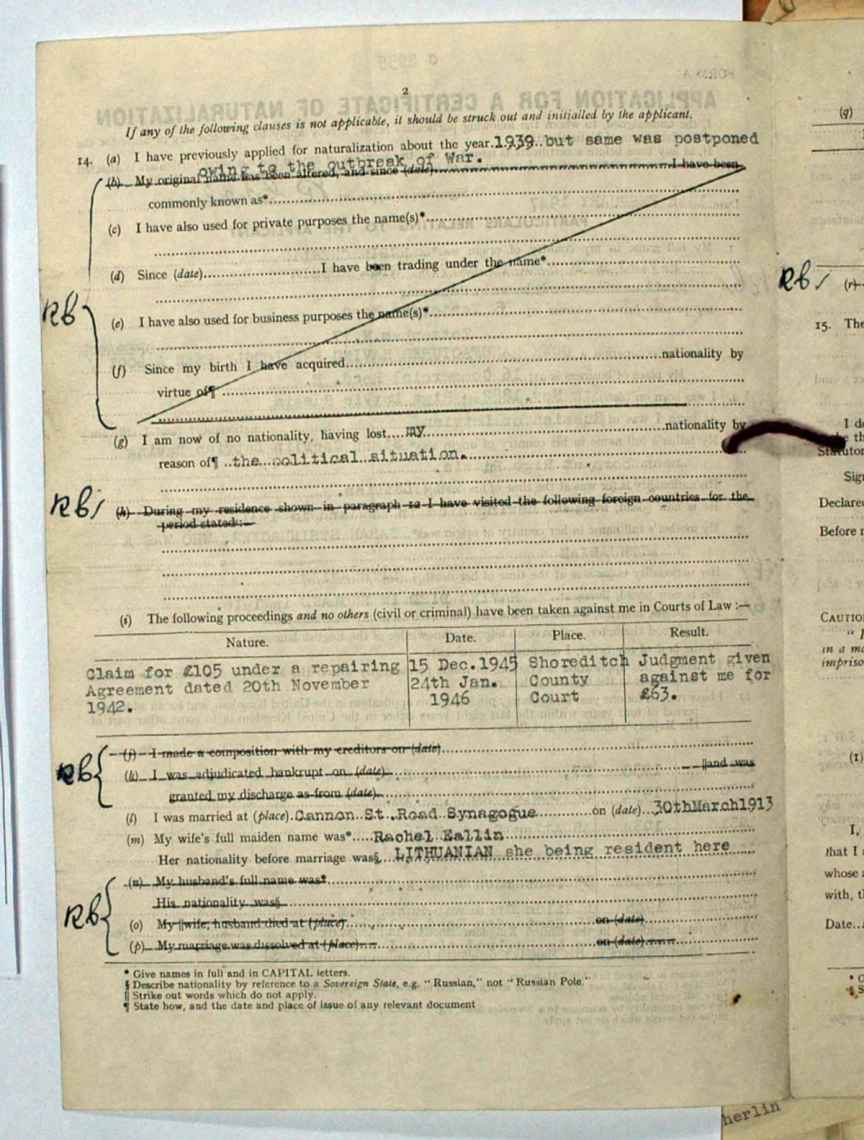 2
If any of the following clauses is not applicable, it should be struck out and initialled by the applicant.
14. (a) I have previously applied for naturalization about the year 1939..but same was postponed
owing to the outbreak of War.
(b) My original name was been altered, and since (date)........I have been
commonly known as*
(c) I have also used for private purposes the name(s)*
(d) Since (date)........I have been trading under the name*
RB
(e) I have also used for business purposes the name(s)*
(f) Since my birth I have acquired........nationality by
virtue of¶
(g) I am now of no nationality, having lost....my........nationality by
reason of¶ ..the..political situation.
RB
(h) During my residence shown in paragraph 12 I have visited the following foreign countries for the
period stated:—
(i) The following proceedings and no others (civil or criminal) have been taken against me in Courts of Law :—
Nature. Date. Place. Result.
Claim for £105 under a repairing 15 Dec.1945 Shoreditch Judgment given
Agreement dated 20th November 24th Jan. County against me for
1942. 1946 Court £63.
(j) I made a composition with my creditors on (date)
RB
(k) I was adjudicated bankrupt on (date)........||and was
granted my discharge as from (date)
(l) I was married at (place)..Cannon St.Road Synagogue........on (date)..30thMarch1913
(m) My wife's full maiden name was*....Rachel
Her nationality before marriage was§..LITHUANIAN she being resident here
(n) My husband's full name was*
His nationality was§
RB
(o) My ||wife, husband died at (place)........on (date)
(p) My marriage was dissolved at (place)........on (date)
* Give names in full and in CAPITAL letters.
§ Describe nationality by reference to a Sovereign State, e.g. "Russian," not "Russian Pole."
|| Strike out words which do not apply.
¶ State how, and the date and place of issue of any relevant document
(g)
RB
(r)
15. The
I de
Statutor
Sign
Declared
Before
CAUTIO
in a ma
impriso
(1)
I,
that I
whose
with, t
Date..
herlin